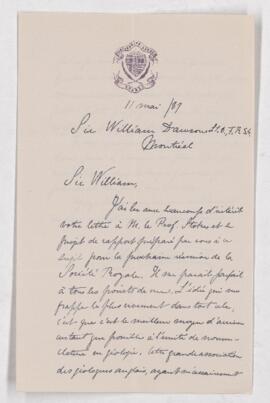 11 mai /87
Sir William Dawson
Montréal
Sir William,
J'ai lu avec beaucoup d'intérêt
votre lettre à M. le Prof. Stokes et le
projet de rapport préparé par vous à ce
sujet pour la prochaine réunion de la
Société Royale. Il me paraît parfait
à tous les points de vue. L'idée qui me
frappe le plus vivement dans tout cela,
c'est que c'est le meilleur moyen d'arriver
autant que possible à l'unité de nomen-
clature en géologie. Cette grande association
des géologues anglais, ayant